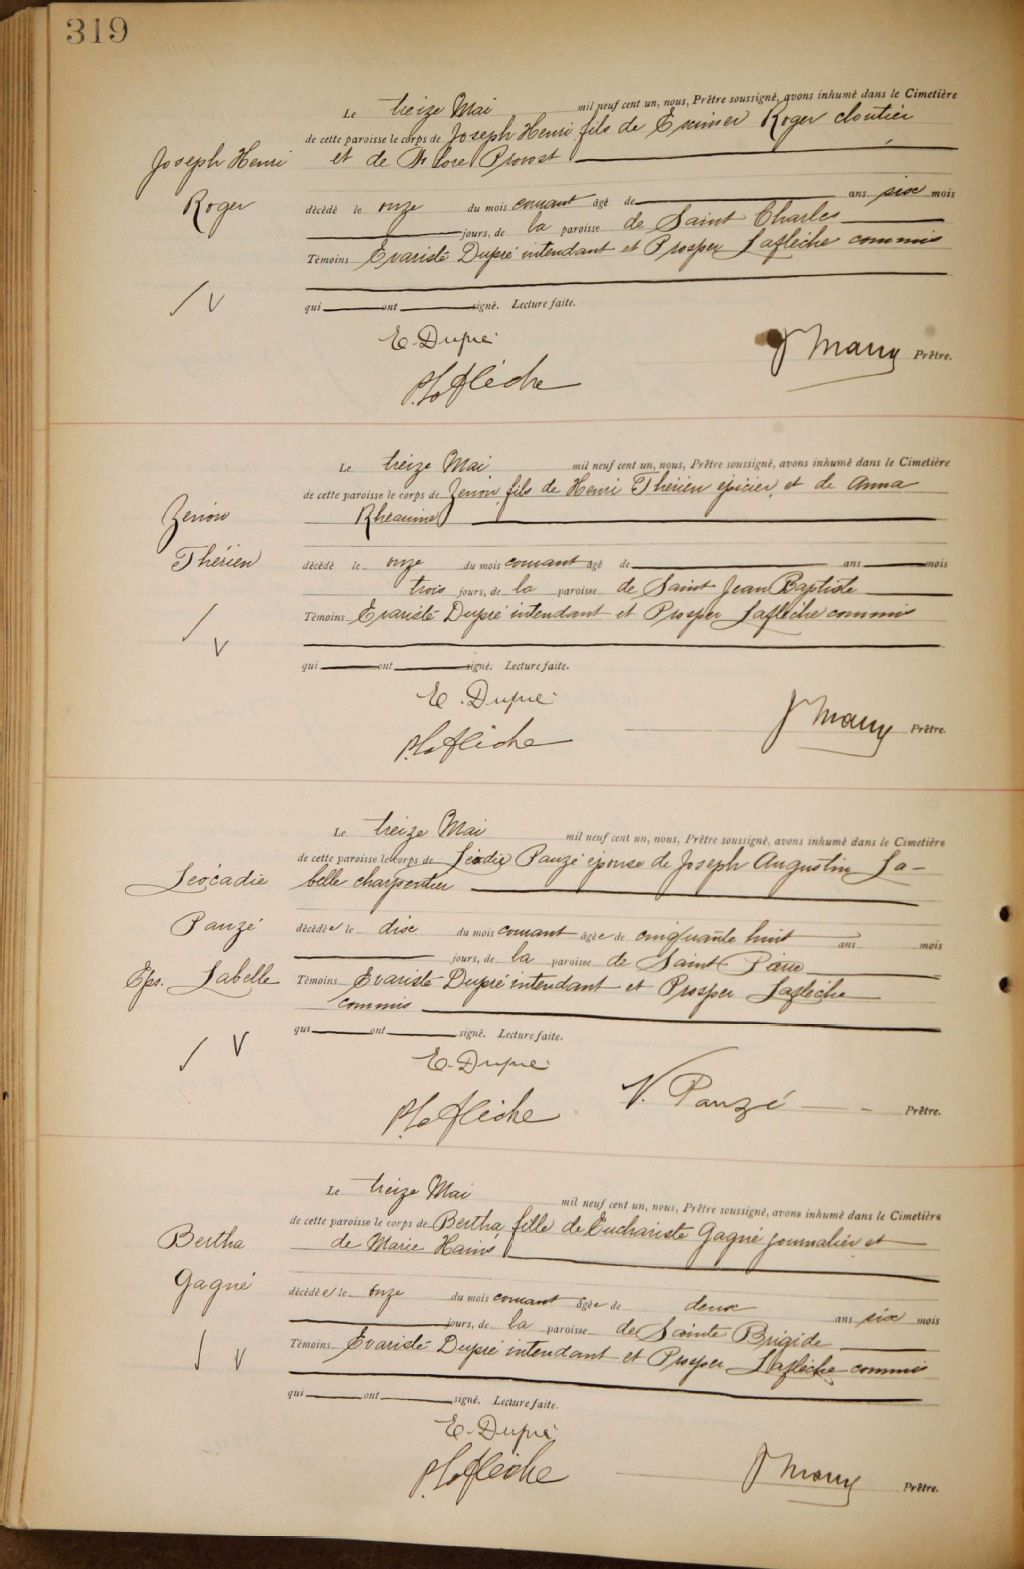 319
Le treize Mai mil neuf cent un, nous, Prêtre soussigné, avons inhumé dans le Cimetière
de cette paroisse le corps de Joseph Henri fils de Roger cloutier
Joseph Henri et de Flore Provost
Roger décédé le onze du mois courant âgé de ans six mois
jours, de la paroisse de Saint Charles
Témoins Evariste Dupré intendant et Prosper Laflèche commis
qui ont signé. Lecture faite.
E. Dupré
J Many Prêtre.
P. Laflèche
Le treize Mai mil neuf cent un, nous, Prêtre soussigné, avons inhumé dans le Cimetière
de cette paroisse le corps de Zenon fils de Henri Thérien épicier et de Anna
Zenon Rheaume
Thérien décédé le onze du mois courant âgé de ans mois
trois jours, de la paroisse de Saint Jean Baptiste
Témoins Evariste Dupré intendant et Prosper Laflèche commis
qui ont signé. Lecture faite.
E. Dupré
J Many Prêtre.
P. Laflèche
Le treize Mai mil neuf cent un, nous, Prêtre soussigné, avons inhumé dans le Cimetière
de cette paroisse le corps de Léodie Pauzé épouse de Joseph Augustin La-
Léocadie belle charpentier
Pauzé décédée le dix du mois courant âgée de cinquante huit ans mois
jours, de la paroisse de Saint Pierre
Eps. Labelle Témoins Evariste Dupré intendant et Prosper Laflèche
commis
qui ont signé. Lecture faite.
E. Dupré
V. Pauzé Prêtre.
P. Laflèche
Le treize Mai mil neuf cent un, nous, Prêtre soussigné, avons inhumé dans le Cimetière
de cette paroisse le corps de Bertha fille de Euchariste Gagné journalier et
Bertha de Marie Hains
Gagné décédée le onze du mois courant âgée de deux ans six mois
jours, de la paroisse de Sainte Brigide
Témoins Evariste Dupré intendant et Prosper Laflèche commis
qui ont signé. Lecture faite.
E. Dupré
P. Laflèche
J Many Prêtre.